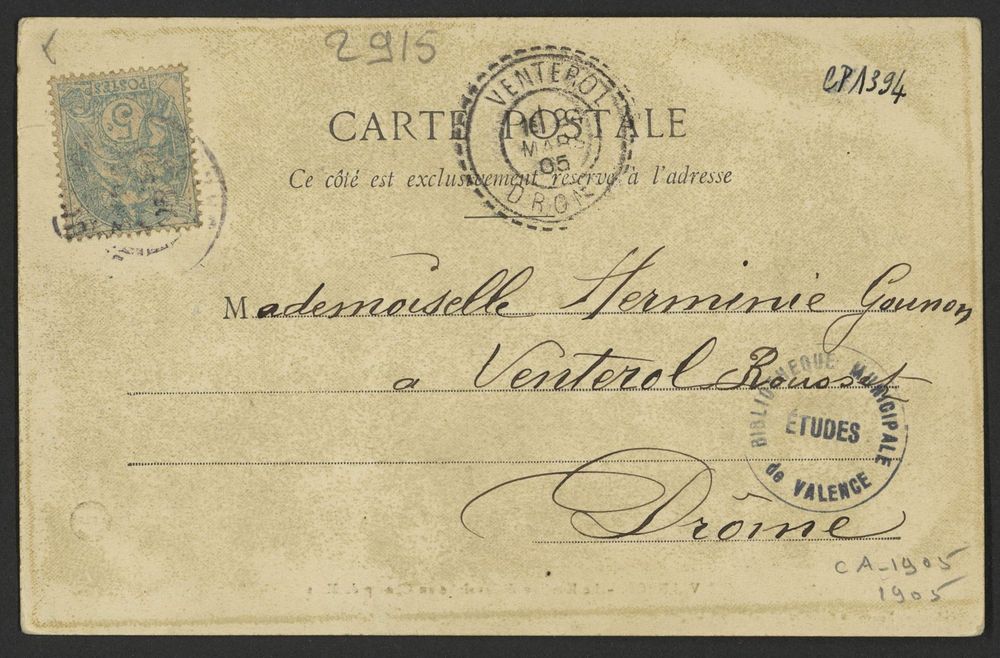 2915
CP1394
POSTES
5c
VENTEROL
MARS
05
DROME
CARTE POSTALE
Ce côté est exclusivement réservé à l'adresse
Mademoiselle Herminie Gounon
a Venterol Rousset
Drôme
BIBLIOTHEQUE MUNICIPALE
ÉTUDES
de VALENCE
CA-1905
1905